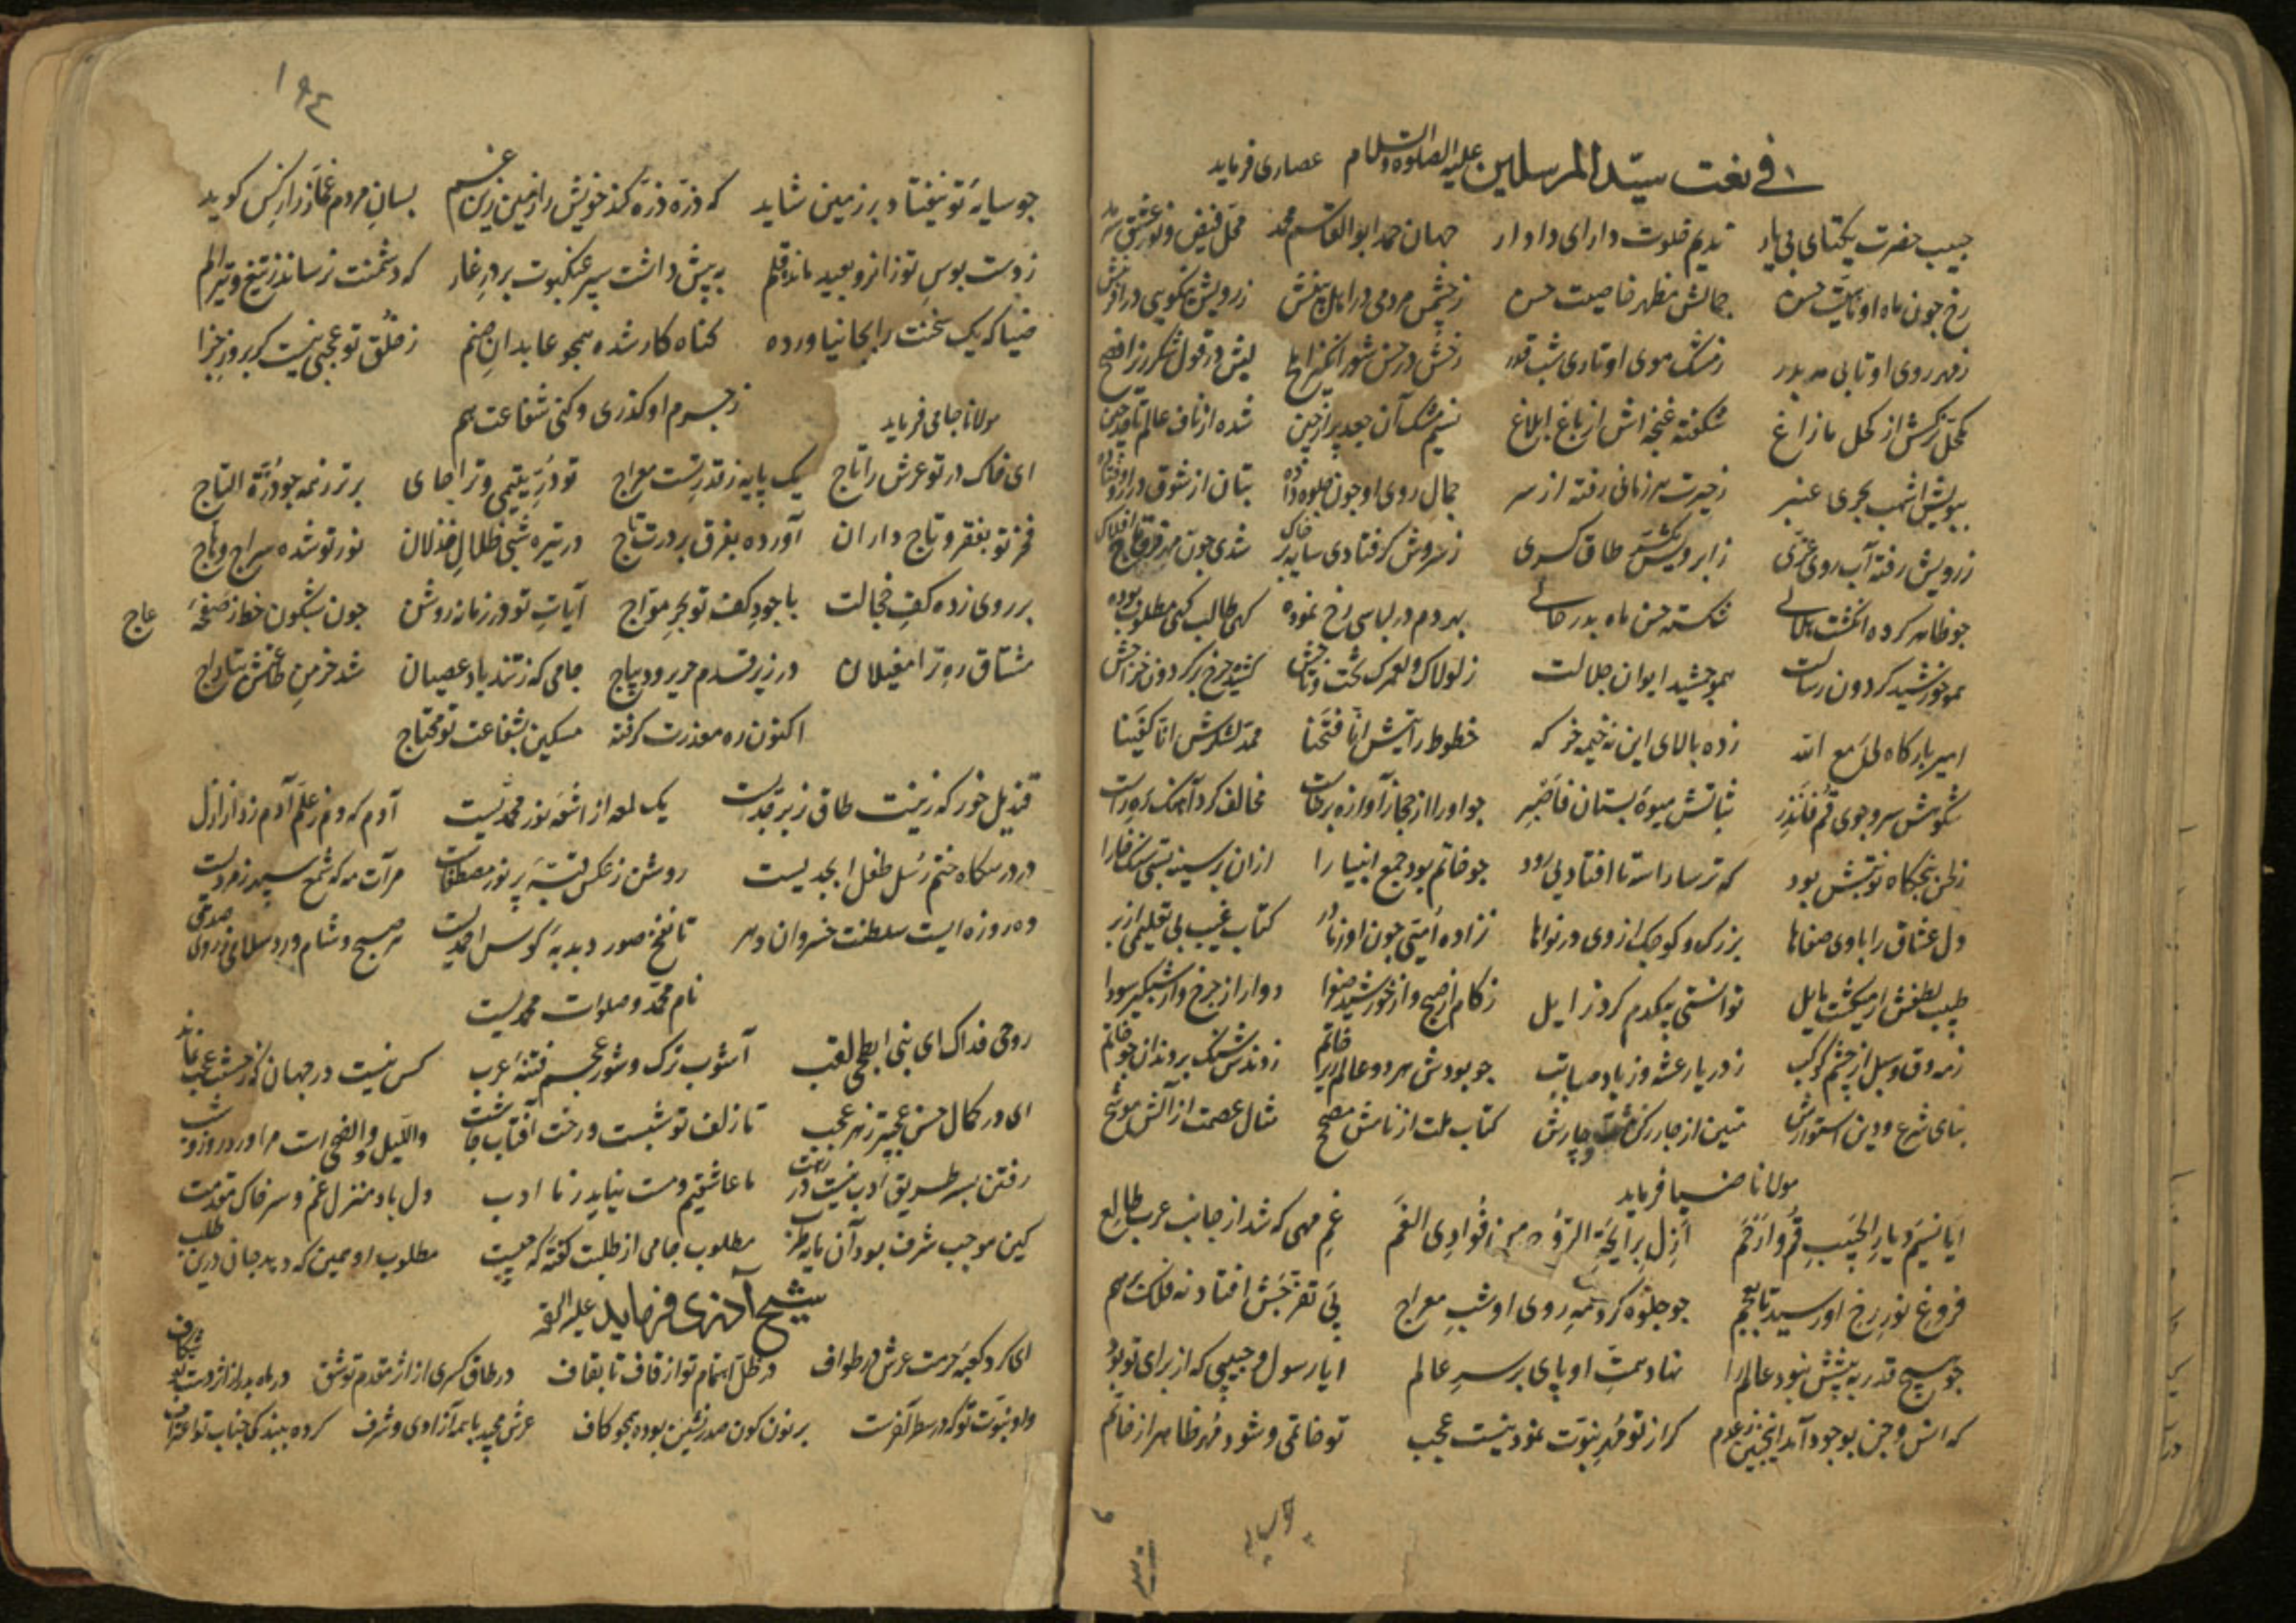 في نعت سيّد المرسلين عليه الصلوة والسلام عصاری فرماید
حبیب حضرت یکتای بی یار ندیم خلوت دارای دادار جهان حمد ابوالقاسم محمد محل فیض و نور عشق
رخ چون ماه او حسن جمالش مظهر خاصیت حسن ز چشمش مردمی در اهل بینش ز رویش نیکویی در آفرینش
ز مهر روی او تابی مه بدر ز مشک موی او تاری شب قدر رخش در حسن شور انگیز املح لبش در قول شکرریز افصح
مکحل نرکسش از کحل مازاغ شکفته غنچه اش از باغ ابلاغ نسیم مشک آن جعد پر از چین شده از ناف عالم تا حد چین
ببویش اشهب بحری عنبر ز حیرت هر زمانی رفته از سر جمال روی او چون جلوه داده بتان از شوق در رو فتاده
ز رویش رفته آب روی عزی ز ابرویش طاق کسری ز سروش کر فتادی سایه بر خاک شدی چون مه افلاک
چو ظاهر کرده انکشت هلالی شکسته حسن ماه بدر حالی بهر دم در لباسی رخ نموده کهی طالب کهی مطلوب بوده
چو خورشید کردون رسالت چو جمشید ایوان جلالت ز لولاک و لعمرک تخت و تاجش کشیده چرخ بر کردون خراجش
امیر بارکاه لی مع الله زده بالای این نه خیمه خرکه خطوط رایتش انّا فتحنا محمد لشکرش انّا کفینا
شکوهش سرو جوی قم فانذر ثباتش میوه بستان فاصبر چو او را از حجاز آوازه برخاست مخالف کرد آهنک ره راست
بود که ترسا راست تا افتاد بی رود چو خاتم بود جمع انبیا را ازان بر سینه بستی سنک خارا
دل عشاق را با وی صفاها بزرک و کوچک از وی در نواها نزاده امتی چون او ز مادر کتاب غیب بی تعلیمی از بر
طبیب لطفش ار میکشت مایل توانستی بیکدم کرد زایل زکام از صبح و از خورشید صفرا دوار از چرخ و از شبکیر سودا
ز مه دق و سبل از چشم کوکب ز دریا رعشه وز باد صبا تب چو بودش هر دو عالم زیر خاتم زدندش سنک بر دندان چو خاتم
بنای شرع و دین استوارش متین از چار رکن و چارش کتاب ملت از نامش مصحح مثال عصمت از آلش موشح
مولانا ضیا فرماید
ایا نسیم دیار الحبیب قم وارحم ازل برایحة الروح من فوادی الغم غم مهی که شد از جانب عرب طالع
فروغ نور رخ او رسید تا بعجم چو جلوه کرد مه روی او شب معراج پی تفرجش افتاد نه فلک برهم
چو هیچ قدر به پیشش نبود عالم را نهاد همت او پای بر سر عالم ایا رسول و حبیبی که از برای تو بود
که انس و جن بوجود آمد اینچنین ز عدم کر از تو مهر نبوّت نمود نیست عجب تو خاتمی و شود مهر ظاهر از خاتم
١٩٤
چو سایه تو نیفتاد بر زمین شاید که ذره ذره کند خویش را زمین زین غم بسان مردم غماز راز کس کوید
ز دست بوس تو زانرو بعید مانده قلم به پیش داشت سپر عنکبوت بر در غار که دشمنت نرساند ز تیغ و تیر الم
ضیا که یک سخنت را بجا نیاورده کناه کار شده همچو عابدان صنم ز خلق تو عجبی نیست کر بروز جزا
ز جرم او کذری و کنی شفاعت هم
مولانا جامی فرماید
ای خاک در تو عرش را تاج یک پایه ز قدر تست معراج تو دُرّ یتیمی و ترا جای برتر ز همه چو درّة التاج
فخر تو بفقر و تاج داران آورده بفرق بر درت تاج در تیره شبی ظلال خذلان نور تو شده سراج وهاج
بر روی زده کف خجالت با جود کف تو بحر مواج آیات تو در زمانه روشن چون بشکون خط ز صفحه عاج
مشتاق ره ترا مغیلان در زیر قدم حریر و دیباج جامی که ز تند باد عصیان شد خرمن طاعتش بتاراج
اکنون ره معذرت کرفته مسکین بشفاعت تو محتاج
قندیل خور که زینت طاق زبرجدیست یک لمعه از اشعه نور محمدیست آدم که دم ز علّم آدم زد از ازل
در درسکاه ختم رسل طفل ابجدیست روشن ز عکس قبه پر نور مصطفاست مرآت مه که شمع سپهر زمردیست
ده روزه ایست سلطنت خسروان دهر تا نفخ صور دبدبه کوس احمدیست هر صبح و شام ورد سلمانی از روی صدق
نام محمد و صلوات محمدیست
روحی فداک ای نبی ابطحی لقب آشوب ترک و شور عجم فتنه عرب کس نیست در جهان که ز حسنت عجب نماند
ای در کمال حسن عجبتر ز هر عجب تا زلف تو شبست و رخت آفتاب چاشت واللیل والضحی است مرا ورد روز و شب
رفتن بسر طریق ادب نیست در رهت ما عاشقیم و مست نیاید ز ما ادب دل باد منزل غم و سر خاک مقدمت
کین موجب شرف بود آن مایه طرب مطلوب جامی از طلبت کفته که چیست مطلوب او همین که دهد جان درین طلب
شیخ آذری فرماید علیه الرحمه
ای کرد کعبه حرمت عرش در طواف در ظل اهتمام تو از قاف تا بقاف در طاق کسری از اثر مقدم تو شق در ماه بدر از اثر دست تو شکاف
واو نبوت تو که در سطر آفرینش بر نون کون صدر نشین بوده همچو کاف عرش مجید با همه آزادی و شرف کرده ببندکی جناب تو اعتراف